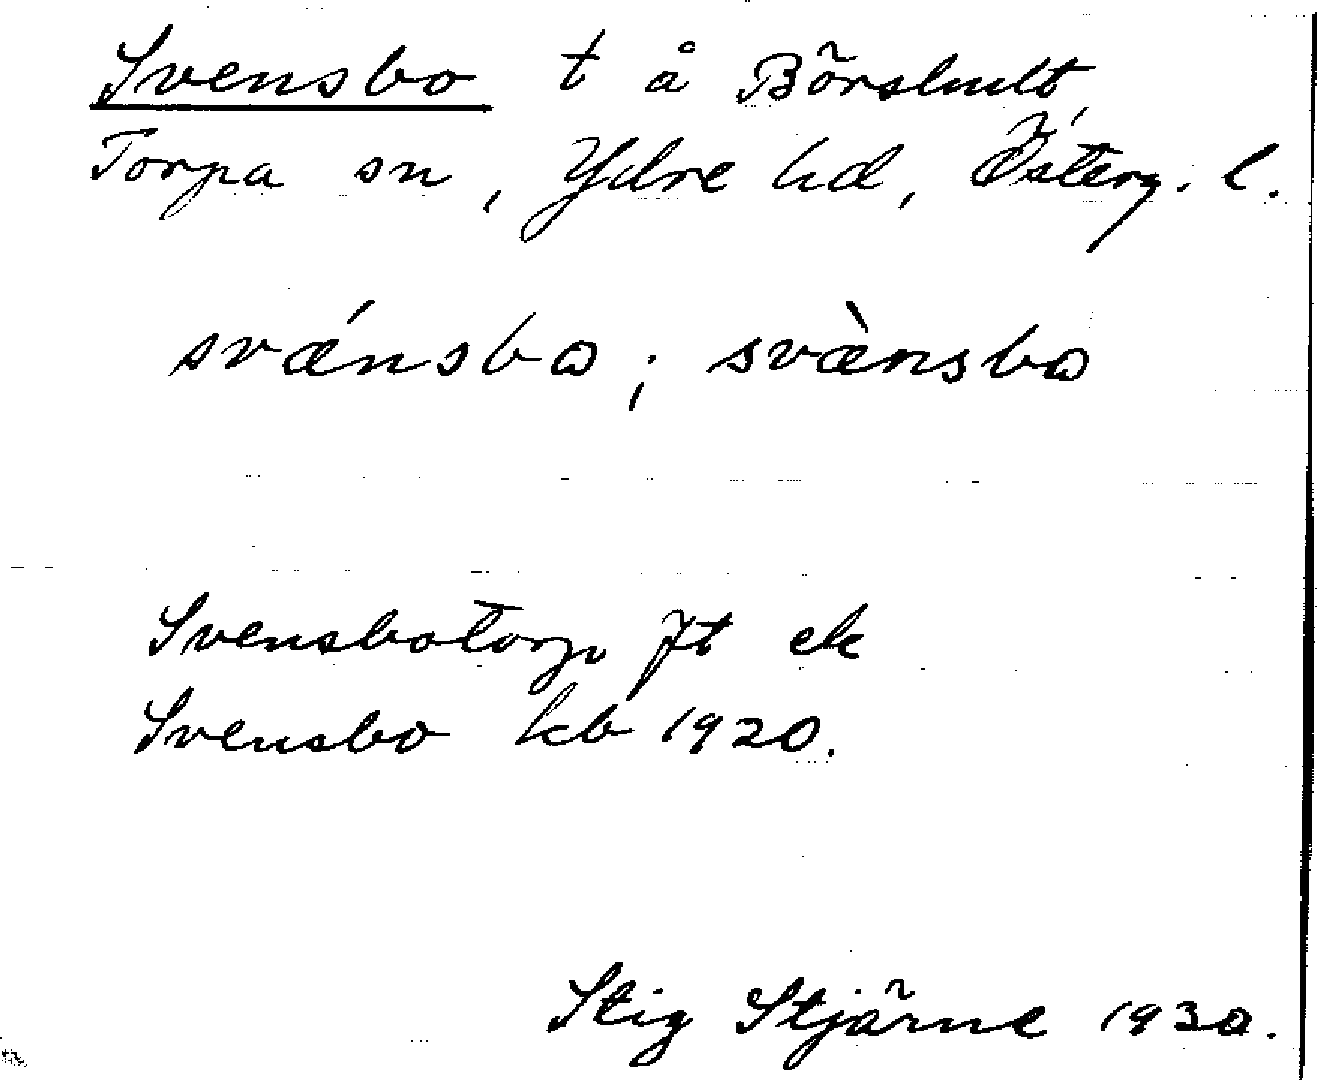 Svensbo t å Börshult,
Torpa sn, Ydre hd, Österg. l.
svǽnsbω; svæ̀nsbω
Svensbotorp Jt ek
Svensbo kb 1920.
Stig Stjärne 1930.